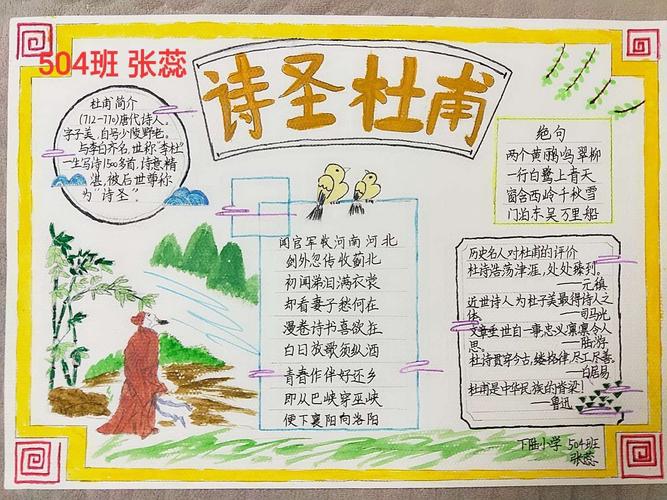 504班 张蕊
诗圣杜甫
杜甫简介
(712-770)唐代诗人,
字子美,自号少陵野老。
与李白齐名,世称"李杜"
一生写诗1500多首,诗意精
湛,被后世尊称
为"诗圣"。
绝句
两个黄鹂鸣翠柳
一行白鹭上青天
窗含西岭千秋雪
门泊东吴万里船
闻官军收河南河北
剑外忽传收蓟北
初闻涕泪满衣裳
却看妻子愁何在
漫卷诗书喜欲狂
白日放歌须纵酒
青春作伴好还乡
即从巴峡穿巫峡
便下襄阳向洛阳
历史名人对杜甫的评价
杜诗浩荡津涯,处处臻到。
——元稹
近世诗人为杜子美最得诗人之
体。——司马光
文章垂世自一事,忠义凛凛令人
思。——陆游
杜诗贯穿今古,缕格律,尽工尽善。
——白居易
杜甫是中华民族的脊梁!
——鲁迅
下陆小学 504班
张蕊